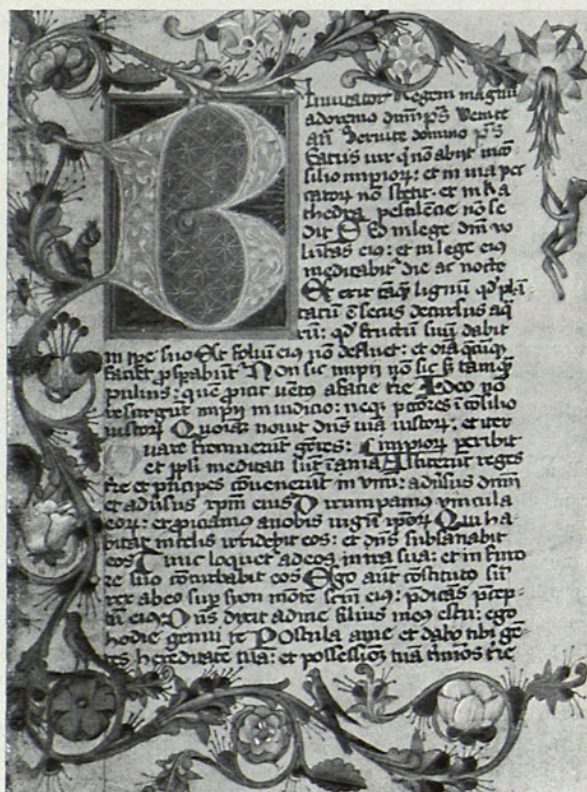 Invitator Regem magnū
adoremus dnm ps Venite
añ Servite domino ps
B Eatus vir q nō abijt in cō
silio impior: et in via pec
cator nō stetit: et in ka
thedra pestilēcie nō se
dit Sed in lege dnī vo
lūtas eius: et in lege eius
meditabit die ac nocte
Et erit tāq lignū qd plā
tatū ē secus decursus aq
rū: qd fructū suū dabit
in tpe suo Et foliū eius nō defluet: et oīa qcūq
faciet pspabūt Non sic impij nō sic sꝫ tamq
pulvis: quē proicit vēto a facie tre Ideo nō
resurgūt impij in iudicio: neqꝫ pctores ī cōsilio
iustor Quoīaꝫ novit dns viā iustor: et iter
Quare fremuerūt gētes: impior peribit
et ppli meditati sūt īania Astiterūt reges
tre et pncipes cōvenerūt in vnū: adūsus dnm
et adūsus xpm eius Dirumpamus vincula
eor: et proiciamus a nobis iugū ipor Qui ha
bitat in celis irridebit eos: et dns subsanabit
eos Tunc loquet ad eos in ira sua: et in furo
re suo cōturbabit eos Ego aut cōstitutus sū
rex ab eo sup sion mōtē scm eius: pdicās prep
tū eius Dns dixit ad me filius meus es tu: ego
hodie genui te Postula a me et dabo tibi gē
tes hereditatē tuā: et possessionē tuā tmīos tre